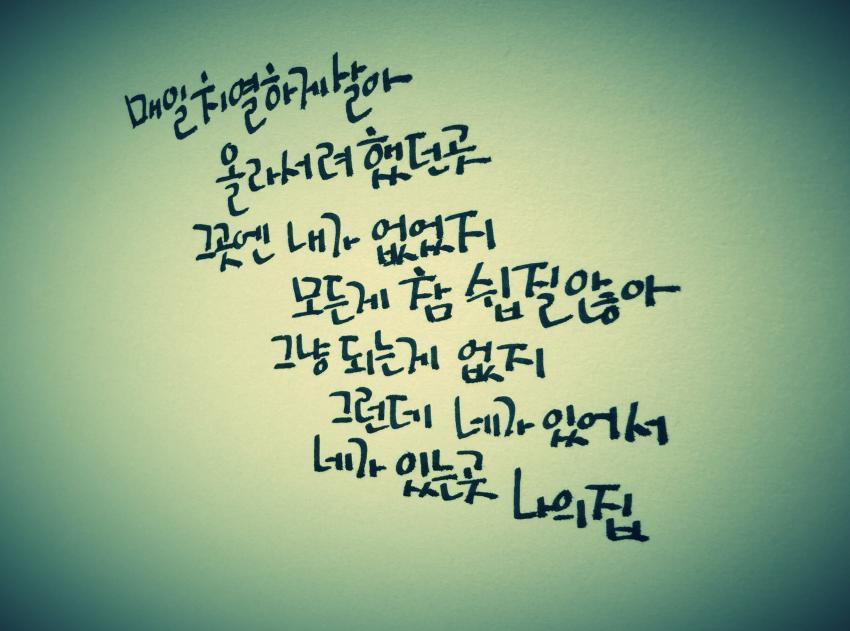 매일 치열하게 살아
올라서려 했던 곳
그곳엔 내가 없었지
모든게 참 쉽질 않아
그냥 되는게 없지
그런데 네가 있어서
네가 있는 곳 나의 집